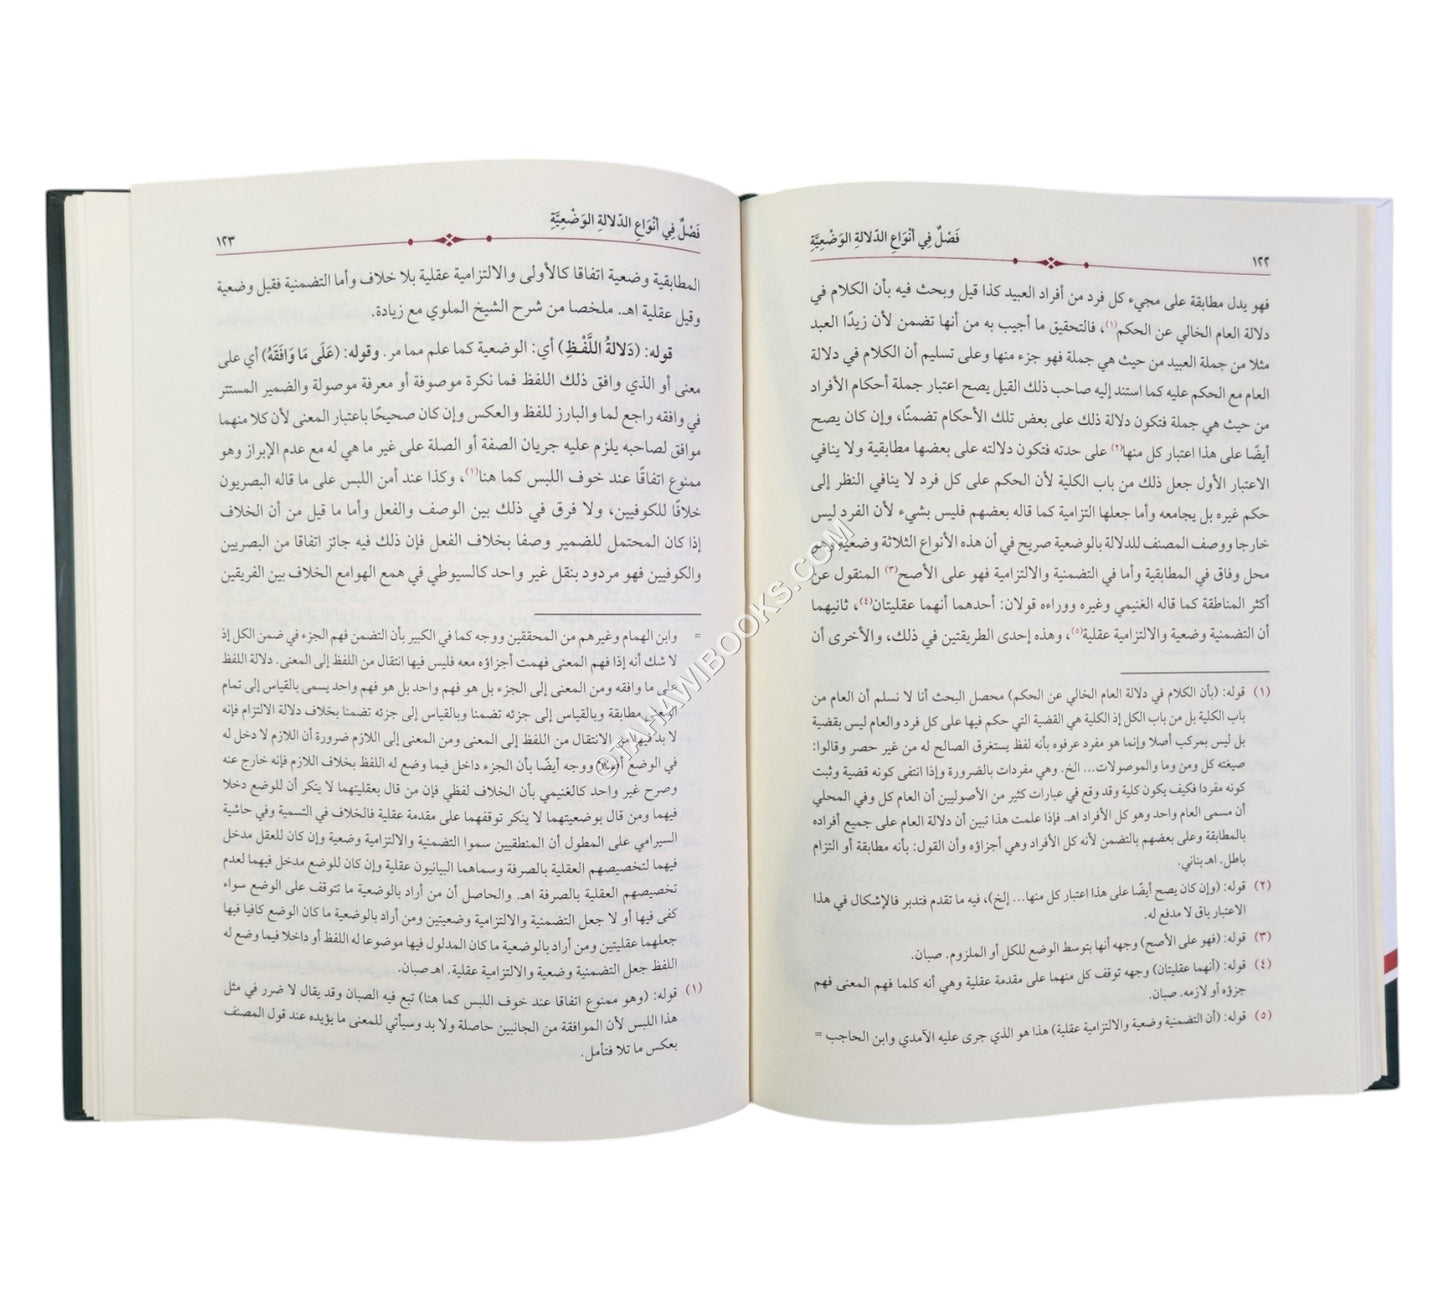 فَصْلٌ فِي أَنْوَاعِ الدّلالةِ الوَضْعِيَّةِ
١٢٢
فهو يدل مطابقة على مجيء كل فرد من أفراد العبيد كذا قيل وبحث فيه بأن الكلام في
دلالة العام الخالي عن الحكم(١)، فالتحقيق ما أجيب به من أنها تضمن لأن زيدًا العبد
مثلا من جملة العبيد من حيث هي جملة فهو جزء منها وعلى تسليم أن الكلام في دلالة
العام مع الحكم عليه كما استند إليه صاحب ذلك القيل يصح اعتبار جملة أحكام الأفراد
من حيث هي جملة فتكون دلالة ذلك على بعض تلك الأحكام تضمنًا، وإن كان يصح
أيضًا على هذا اعتبار كل منها(٢) على حدته فتكون دلالته على بعضها مطابقية ولا ينافي
الاعتبار الأول جعل ذلك من باب الكلية لأن الحكم على كل فرد لا ينافي النظر إلى
حكم غيره بل يجامعه وأما جعلها التزامية كما قاله بعضهم فليس بشيء لأن الفرد ليس
خارجا ووصف المصنف للدلالة بالوضعية صريح في أن هذه الأنواع الثلاثة وضعية وهو
محل وفاق في المطابقية وأما في التضمنية والالتزامية فهو على الأصح(٣) المنقول عن
أكثر المناطقة كما قاله الغنيمي وغيره ووراءه قولان: أحدهما أنهما عقليتان(٤)، ثانيهما
أن التضمنية وضعية والالتزامية عقلية(٥)، وهذه إحدى الطريقتين في ذلك، والأخرى أن
(١) قوله: (بأن الكلام في دلالة العام الخالي عن الحكم) محصل البحث أنا لا نسلم أن العام من
باب الكلية بل من باب الكل إذ الكلية هي القضية التي حكم فيها على كل فرد والعام ليس بقضية
بل ليس بمركب أصلا وإنما هو مفرد عرفوه بأنه لفظ يستغرق الصالح له من غير حصر وقالوا:
صيغته كل ومن وما والموصولات... الخ. وهي مفردات بالضرورة وإذا انتفى كونه قضية وثبت
كونه مفردا فكيف يكون كلية وقد وقع في عبارات كثير من الأصوليين أن العام كل وفي المحلي
أن مسمى العام واحد وهو كل الأفراد اهـ. فإذا علمت هذا تبين أن دلالة العام على جميع أفراده
بالمطابقة وعلى بعضهم بالتضمن لأنه كل الأفراد وهي أجزاؤه وأن القول: بأنه مطابقة أو التزام
باطل. اهـ بناني.
(٢) قوله: (وإن كان يصح أيضًا على هذا اعتبار كل منها... إلخ)، فيه ما تقدم فتدبر فالإشكال في هذا
الاعتبار باق لا مدفع له.
(٣) قوله: (فهو على الأصح) وجهه أنها بتوسط الوضع للكل أو الملزوم. صبان.
(٤) قوله: (أنهما عقليتان) وجهه توقف كل منهما على مقدمة عقلية وهي أنه كلما فهم المعنى فهم
جزؤه أو لازمه. صبان.
(٥) قوله: (أن التضمنية وضعية والالتزامية عقلية) هذا هو الذي جرى عليه الآمدي وابن الحاجب =
فَصْلٌ فِي أَنْوَاعِ الدّلالةِ الوَضْعِيَّةِ
١٢٣
المطابقية وضعية اتفاقا كالأولى والالتزامية عقلية بلا خلاف وأما التضمنية فقيل وضعية
وقيل عقلية اهـ. ملخصا من شرح الشيخ الملوي مع زيادة.
قوله: (دَلالةُ اللَّفْظِ) أي: الوضعية كما علم مما مر. وقوله: (عَلَى مَا وَافَقَهُ) أي على
معنى أو الذي وافق ذلك اللفظ فما نكرة موصوفة أو معرفة موصولة والضمير المستتر
في وافقه راجع لما والبارز للفظ والعكس وإن كان صحيحًا باعتبار المعنى لأن كلا منهما
موافق لصاحبه يلزم عليه جريان الصفة أو الصلة على غير ما هي له مع عدم الإبراز وهو
ممنوع اتفاقًا عند خوف اللبس كما هنا(١)، وكذا عند أمن اللبس على ما قاله البصريون
خلافًا للكوفيين، ولا فرق في ذلك بين الوصف والفعل وأما ما قيل من أن الخلاف
إذا كان المحتمل للضمير وصفا بخلاف الفعل فإن ذلك فيه جائز اتفاقا من البصريين
والكوفيين فهو مردود بنقل غير واحد كالسيوطي في همع الهوامع الخلاف بين الفريقين
= وابن الهمام وغيرهم من المحققين ووجه كما في الكبير بأن التضمن فهم الجزء في ضمن الكل إذ
لا شك أنه إذا فهم المعنى فهمت أجزاؤه معه فليس فيها انتقال من اللفظ إلى المعنى. دلالة اللفظ
على ما وافقه ومن المعنى إلى الجزء بل هو فهم واحد بل هو فهم واحد يسمى بالقياس إلى تمام
المعنى مطابقة وبالقياس إلى جزئه تضمنا وبالقياس إلى جزئه تضمنا بخلاف دلالة الالتزام فإنه
لا بد فيها من الانتقال من اللفظ إلى المعنى ومن المعنى إلى اللازم ضرورة أن اللازم لا دخل له
في الوضع ووجه أيضًا بأن الجزء داخل فيما وضع له اللفظ بخلاف اللازم فإنه خارج عنه
وصرح غير واحد كالغنيمي بأن الخلاف لفظي فإن من قال بعقليتهما لا ينكر أن للوضع دخلا
فيهما ومن قال بوضعيتهما لا ينكر توقفهما على مقدمة عقلية فالخلاف في التسمية وفي حاشية
السيرامي على المطول أن المنطقيين سموا التضمنية والالتزامية وضعية وإن كان للعقل مدخل
فيهما لتخصيصهم العقلية بالصرفة وسماهما البيانيون عقلية وإن كان للوضع مدخل فيهما لعدم
تخصيصهم العقلية بالصرفة اهـ. والحاصل أن من أراد بالوضعية ما تتوقف على الوضع سواء
كفى فيها أو لا جعل التضمنية والالتزامية وضعيتين ومن أراد بالوضعية ما كان الوضع كافيا فيها
جعلهما عقليتين ومن أراد بالوضعية ما كان المدلول فيها موضوعا له اللفظ أو داخلا فيما وضع له
اللفظ جعل التضمنية وضعية والالتزامية عقلية. اهـ صبان.
(١) قوله: (وهو ممنوع اتفاقا عند خوف اللبس كما هنا) تبع فيه الصبان وقد يقال لا ضرر في مثل
هذا اللبس لأن الموافقة من الجانبين حاصلة ولا بد وسيأتي للمعنى ما يؤيده عند قول المصنف
بعكس ما تلا فتأمل.
©TAHAWIBOOKS.COM